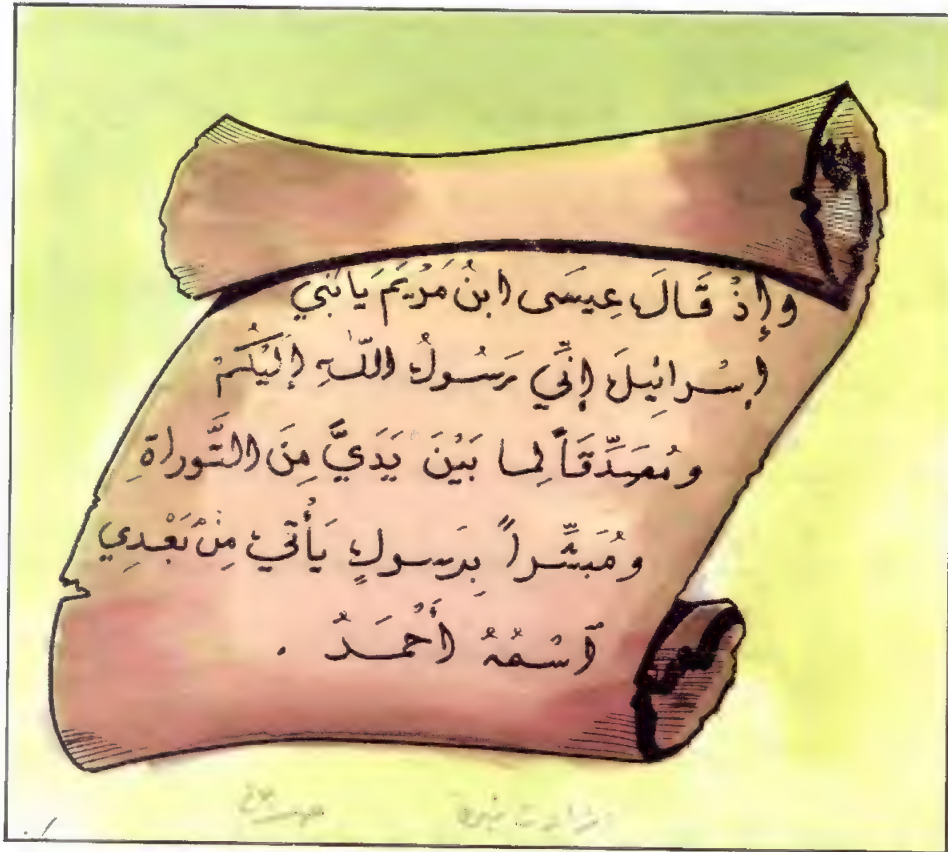 وإِذْ قَالَ عِيسَى ابنُ مَرْيَمَ يَابَنِي
إِسْرائِيلَ إِنِّي رَسُولُ اللّٰهِ إِلَيْكُمْ
ومُصَدِّقَاً لِما بَيْنَ يَدَيَّ مِنَ التَّوراةِ
ومُبَشِّراً بِرَسولٍ يَأْتي مِنْ بَعْدِي
ٱسْمُهُ أَحْمَدُ .